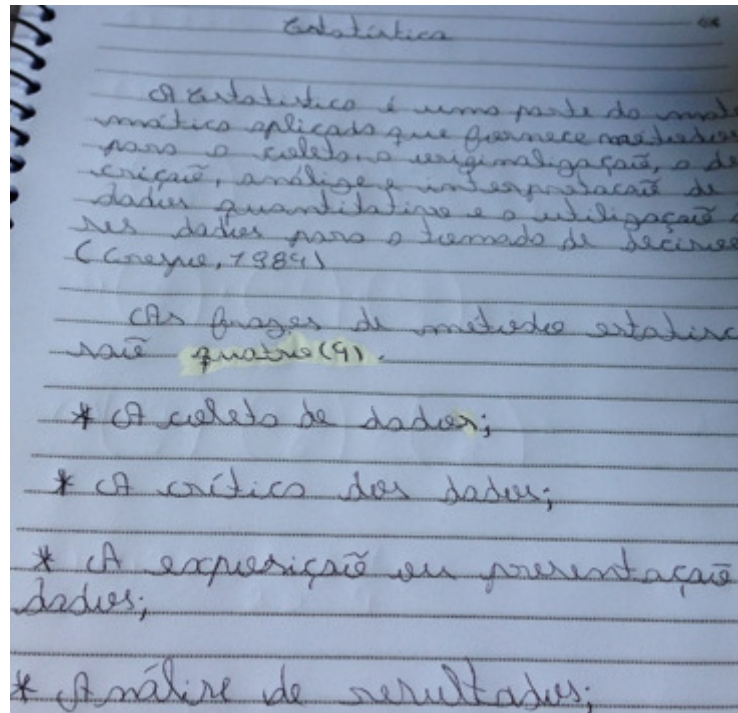 Estatística
A Estatística é uma parte da mate
mática aplicada que fornece métodos
para a coleta, a originalização, a de
criçaõ, análise e interpretacaõ de
dados quantitativo e a utilizaçaõ
ses dados para a tomada de decisoes
(Crespo, 1984)
As frazes de método estatisc
saõ quatro (4).
* A coleta de dados;
* A crítica dos dados;
* A exposiçaõ ou presentaçaõ
dados;
* Análise de resultados;